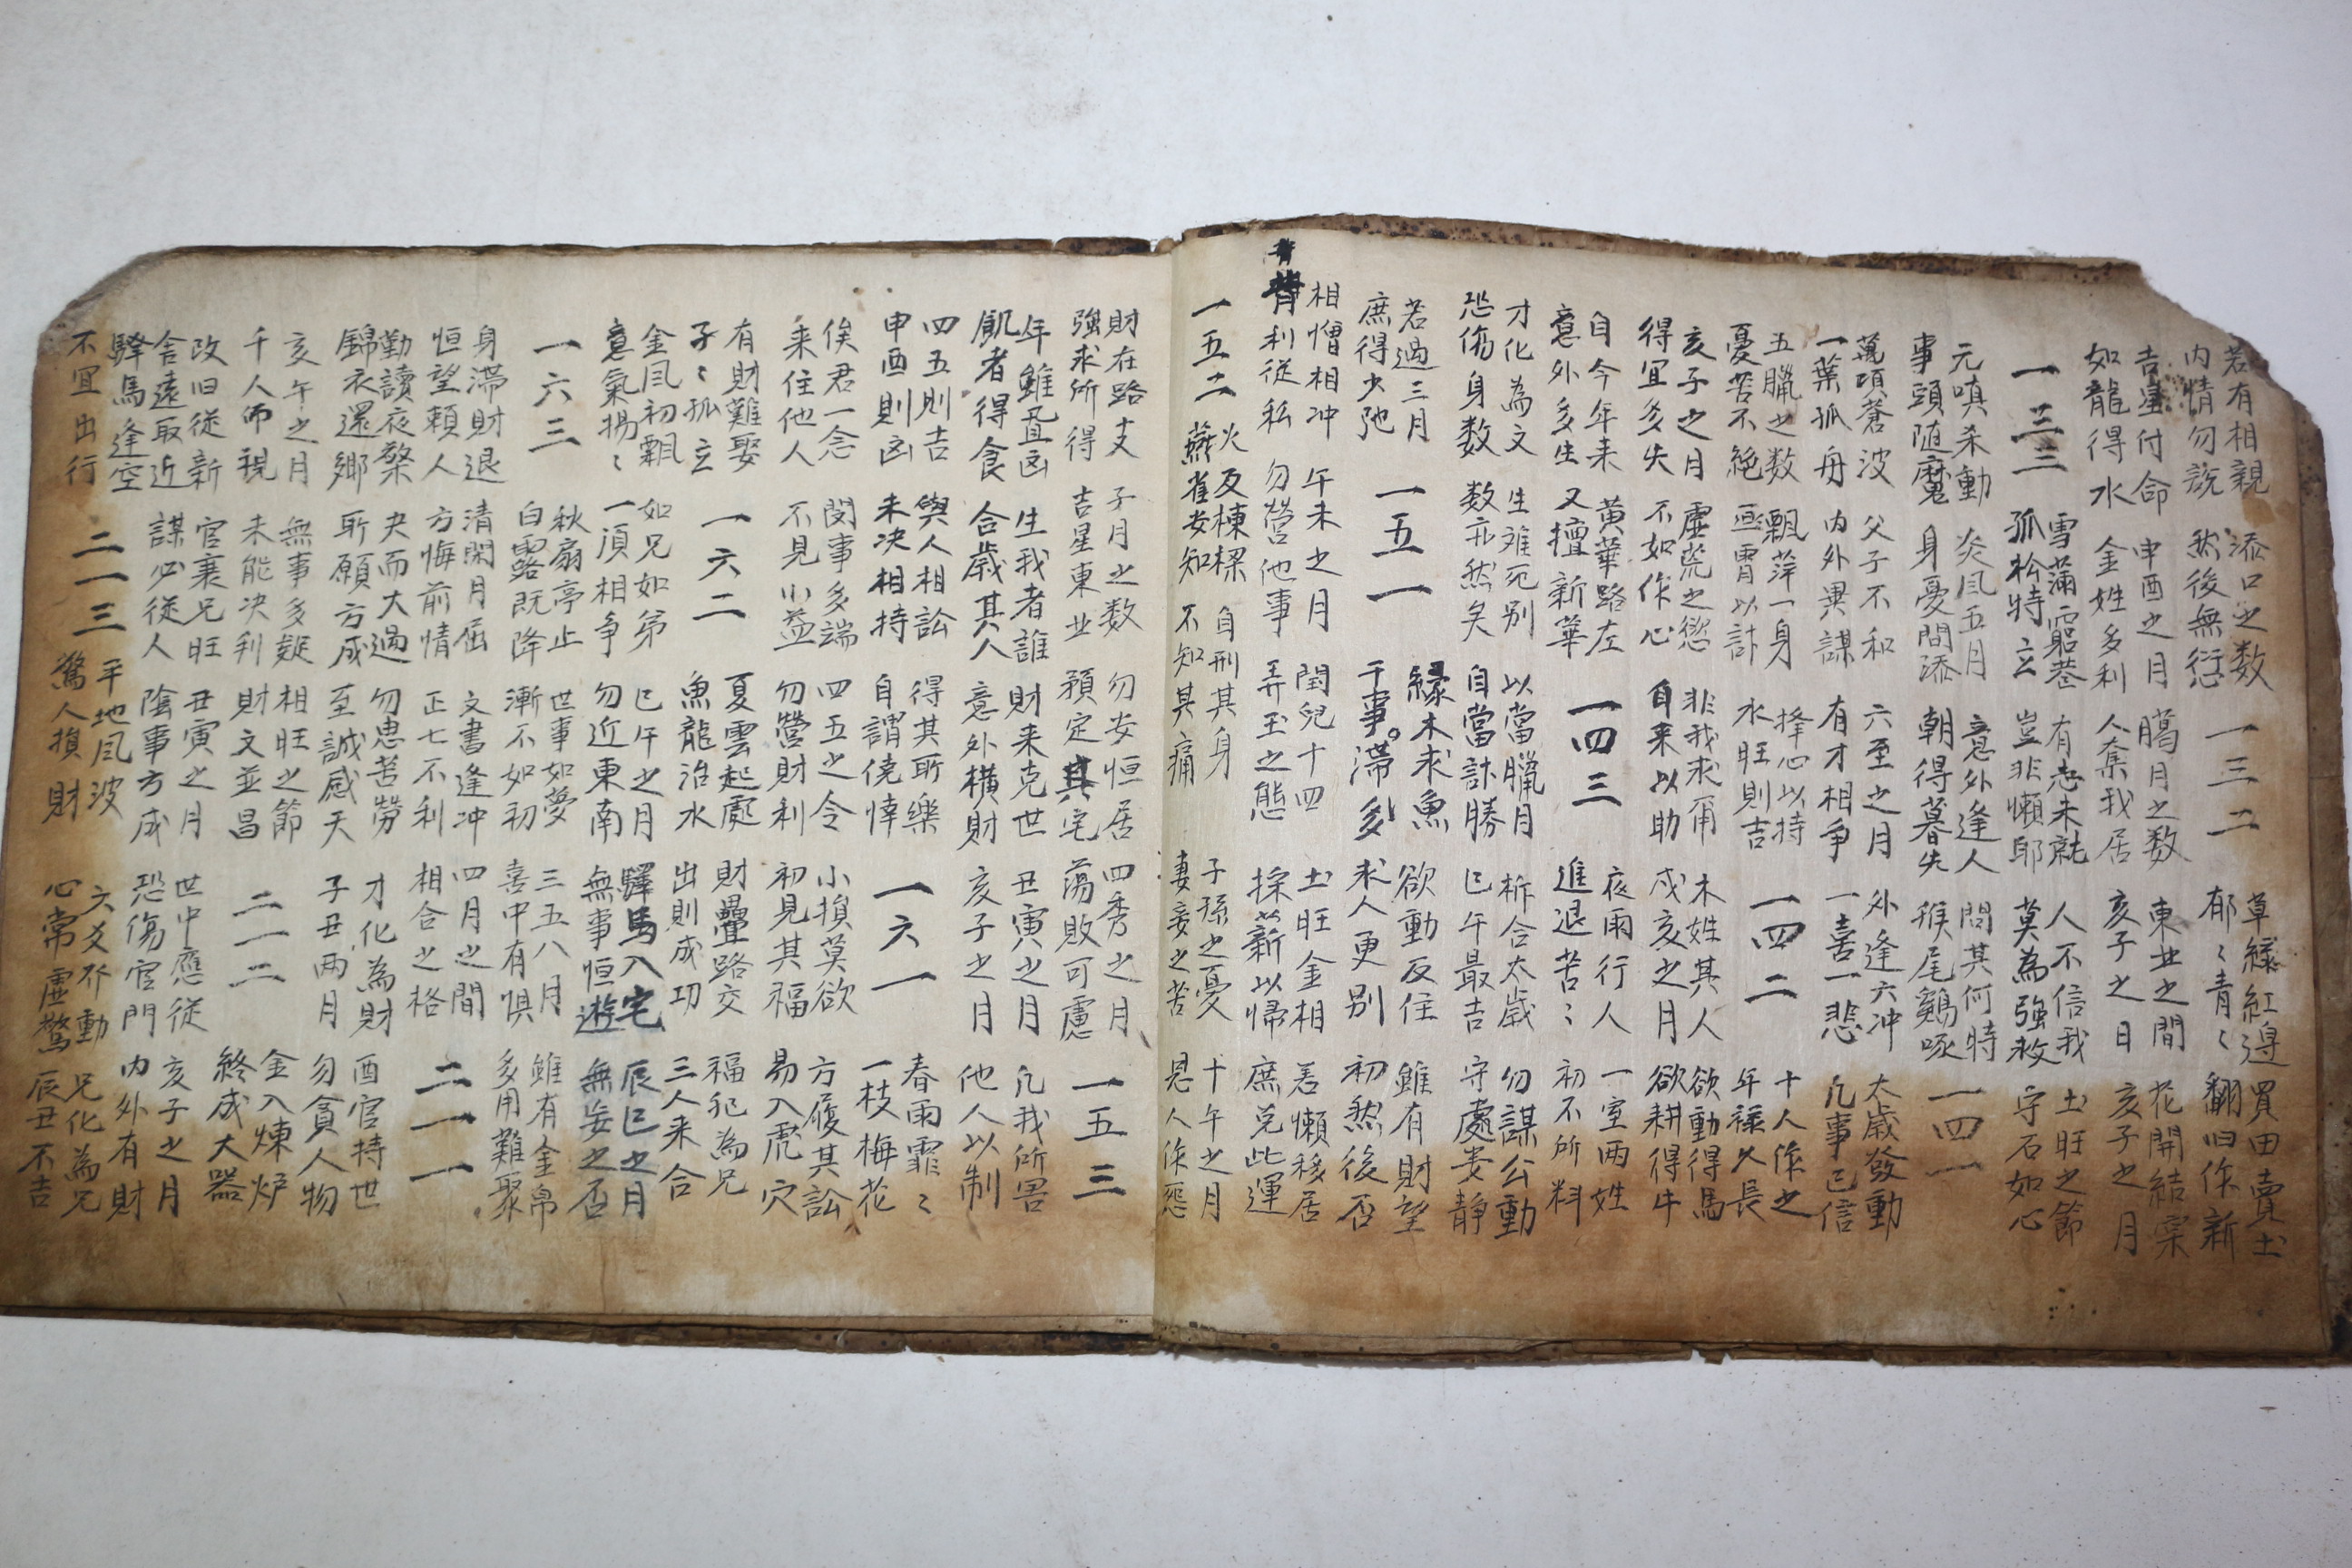 若有相親
内情勿說
添口之数
然後無愆
一三二
草緑紅邉
郁〻青〻
買田賣土
翻旧作新
吉星付命
如龍得水
申酉之月
金姓多利
臈月之数
人奪我居
東北之間
亥子之日
花開結宲
亥子之月
一三三
雪滿窮巷
孤松特立
有志未就
豈非懶耶
人不信我
莫為強救
土旺之節
守石如心
元嗔杀動
事頭随魔
炎風五月
身憂間添
意外逢人
朝得暮失
問其何特
猴尾鷄啄
一四一
萬頃蒼波
一葉孤舟
父子不和
内外異謀
六至之月
有才相爭
外逢六冲
一喜一悲
太歲發動
凡事已信
五臘之数
憂苦不絶
飄萍一身
以計
擇心以持
水旺則吉
一四二
十人作之
年祿久長
亥子之月
得冝多失
虛荒之慾
不如作心
非我求
自来以助
木姓其人
戌亥之月
欲動得馬
欲耕得牛
自今年来
意外多生
黄華路左
又擅新華
一四三
夜雨行人
進退苦〻
一室两姓
初不所料
才化為文
恐傷身数
生难死别
数亦然矣
以當臘月
自當計勝
柝合太歲
巳午最吉
勿謀公動
守處娄靜
若過三月
庶得少弛
一五一
緣木求魚
千事滯多
欲動反住
求人更别
雖有財望
初然後否
相憎相冲
背利從私
午未之月
勿營他事
閏兒十四
弄玉之態
土旺金相
採薪以帰
若懶移居
庶免此運
一五二
火反棟樑
燕雀安知
自刑其身
不知其痛
子孫之憂
妻妾之苦
十午之月
恩人作怨
財在路支
強求所得
子月之数
吉星東北
勿安恒居
預定其宅
四秀之月
蕩敗可慮
一五三
年雖直凶
飢者得食
生我者誰
合歲其人
財来克世
意外橫財
丑寅之月
亥子之月
凡我所畧
他人以制
四五則吉
申酉則凶
與人相訟
未决相持
得其所樂
自謂僥倖
一六一
春雨霏〻
一枝梅花
俟君一念
来住他人
関事多端
不見小益
四五之令
勿營財利
小損莫欲
初見其福
方履其訟
易入虎穴
有財難娶
孑〻孤立
一六二
夏雲起處
魚龍治水
財疊路交
出則成功
福犯為兄
三人来合
金風初飄
意氣揚〻
如兄如弟
一頃相爭
巳午之月
勿近東南
驛馬入宅
無事恒遊
辰巳之月
無妄之否
一六三
秋扇亭止
白露既降
世事如夢
漸不如初
三五八月
喜中有惧
雖有金帛
多用難聚
身滯財退
恒望賴人
清閑月屈
方悔前情
文書逢冲
正七不利
四月之間
相合之格
二一一
勤讀夜檠
錦衣還鄉
夬而大過
所願方成
勿患苦勞
至誠感天
才化為財
子丑两月
酉官持世
勿貪人物
亥午之月
千人而視
無事多疑
未能决判
相旺之節
財文並昌
二一二
金入煉炉
終成大器
改旧従新
舍遠取近
官衰兄旺
謀必従人
丑寅之月
陰事方成
世中應従
恐傷官門
亥子之月
内外有財
驛馬逢空
不冝出行
二一三
平地風波
驚人損財
六爻乔動
心常虛驚
兄化為兄
辰丑不吉